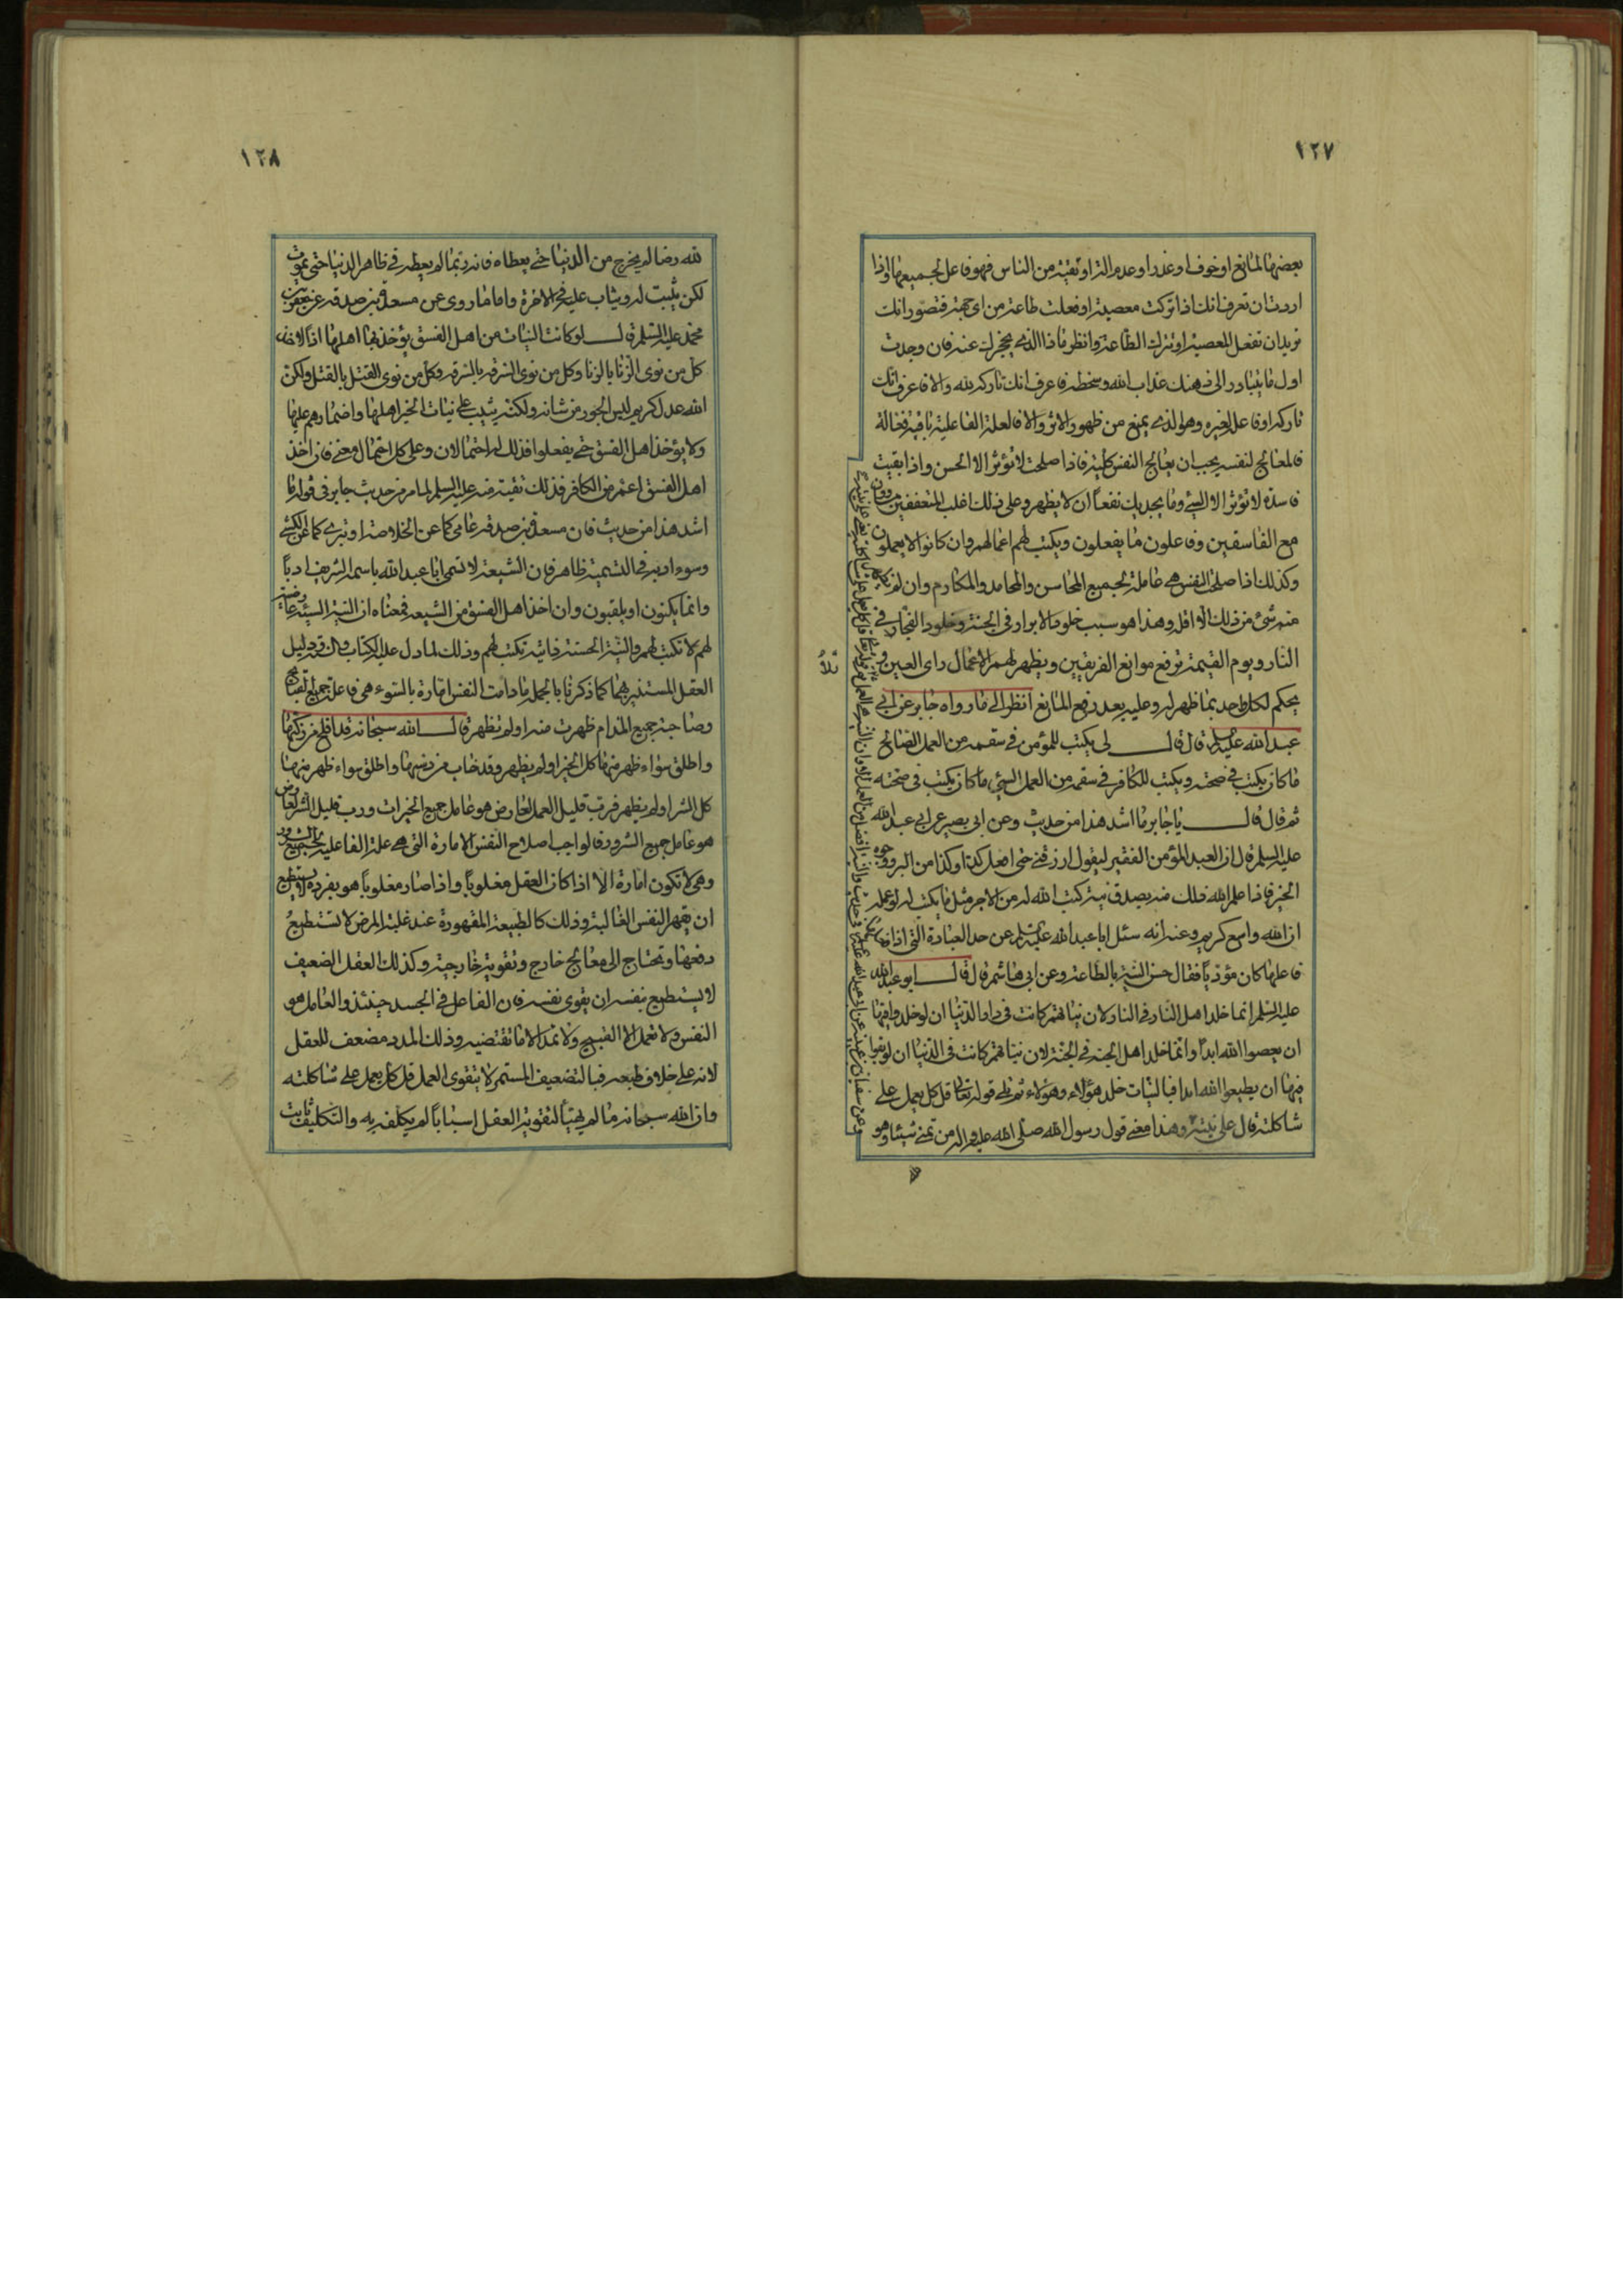 ١٢٧
بعضها لمانع او خوف او عذر او عدم الة او تقية من الناس فهو فاعل لجميعها واذا
اردت ان تعرف انك اذا تركت معصية او فعلت طاعة من اى جهة فتصور انك
تريد ان تفعل المعصية او تترك الطاعة وانظر ماذا الذى يحجزك عنه فان وجدت
اول ما يتبادر الى ذهنك عذاب الله وسخطه فاعرف انك تاركه لله والا فاعرف انك
تاركه او فاعله لغيره وهو الذى يمنع من ظهور الاثر والا فالعلة الفاعلية باقية فعالة
فالمعالج لنفسه يجب ان يعالج النفس كلية فاذا صلحت لا تؤثر الا الحسن واذا بقيت
فاسدة لا تؤثر الا السيئ وما يجديك نفعا ان لا يظهر وعلى ذلك اغلب المتعففين
مع الفاسقين وفاعلون ما يفعلون ويكتب لهم اعمالهم وان كانوا لا يعملون
وكذلك اذا صلحت النفس هى عاملة لجميع المحاسن والمحامد والمكارم وان لم يظهر
منه شئ من ذلك الا اقله وهذا هو سبب خلود الابرار فى الجنة وخلود الفجار فى
النار ويوم القيمة ترفع موانع الفريقين ويظهر لهم الاعمال راى العين و
يحكم لكل واحد بما ظهر له وعليه بعد رفع المانع انظر الى ما رواه جابر عن ابى
عبد الله عليه السلم قال قال لى يكتب للمؤمن فى سقمه من العمل الصالح
ما كان يكتب فى صحته ويكتب للكافر فى سقمه من العمل السيئ ما كان يكتب فى صحته
ثم قال قال يا جابر ما اشد هذا من حديث وعن ابى بصير عن ابى عبد الله
عليه السلم قال ان العبد المؤمن الفقير ليقول ارزقنى حتى افعل كذا وكذا من البر ووجوه
الخير فاذا علم الله ذلك منه بصدق نية كتب الله له من الاجر مثل ما يكتب له لو عمله
ان الله واسع كريم وعنه انه سئل ابا عبد الله عليه السلم عن حد العبادة التى اذا فعلها
فاعلها كان مؤديا فقال حسن النية بالطاعة وعن ابى هاشم قال قال ابو عبد الله
عليه السلم انما خلد اهل النار فى النار لان نياتهم كانت فى دار الدنيا ان لو خلدوا فيها
ان يعصوا الله ابدا وانما خلد اهل الجنة فى الجنة لان نياتهم كانت فى الدنيا ان لو بقوا
فيها ان يطيعوا الله ابدا فبالنيات خلد هؤلاء وهؤلاء ثم تلى قوله تعالى قل كل يعمل على
شاكلته قال على نيته وهذا معنى قول رسول الله صلى الله عليه واله من تمنى شيئا وهو
وعن سفيان بن عيينة عن ابى عبد الله عليه السلم
١٢٨
لله رضا لم يخرج من الدنيا حتى يعطاه فانه ربما لم يعطه فى ظاهر الدنيا حتى يموت
لكن يثبت له ويثاب عليه فى الاخرة واما ما روى عن مسعدة بن صدقه عن جعفر بن
محمد عليه السلم قال لو كانت النيات من اهل الفسق يؤخذ بها اهلها اذا لاخذ
كل من نوى الزنا بالزنا وكل من نوى السرقه بالسرقه وكل من نوى القتل بالقتل ولكن
الله عدل كريم ليس الجور من شانه ولكنه يثيب على نيات الخير اهلها واضمارهم عليها
ولا يؤخذ اهل الفسق حتى يفعلوا فذلك له احتمالان وعلى كل احتمال معنى فان اخذ
اهل الفسق اعم من الكافر فذلك تقية منه عليه السلم لما مر من حديث جابر فى قوله ما
اشد هذا من حديث فان مسعدة بن صدقه عامى كما عن الخلاصة او بترى كما عن الكشى
وسوء ادبه فى التسمية ظاهر فان الشيعة لا تسمى ابا عبد الله باسمه الشريف ادبا
وانما يكنون او يلقبون وان اخذ اهل الفسق من الشيعه فمعناه ان النية السيئة عارضية
لهم لا تكتب لهم والنية الحسنة ذاتية تكتب لهم وذلك لما دل عليه الكتاب والسنة ودليل
العقل المستنير بهما كما ذكرنا بالجملة ما دامت النفس امارة بالسوء هى فاعلة جميع القبائح
وصاحبة جميع المذام ظهرت منه او لم تظهر قال الله سبحانه قد افلح من زكيها
واطلق سواء ظهر منها كل الخير او لم يظهر وقد خاب من دسيها واطلق سواء ظهر منها
كل الشر او لم يظهر فرب قليل العمل العارض هو عامل جميع الخيرات ورب قليل الشر العارض
هو عامل جميع الشرور فالواجب اصلاح النفس الامارة التى هى علة الفاعلية لجميع الشرور
وهى لا تكون امارة الا اذا كان العقل مغلوبا واذا صار مغلوبا هو بفرده لا يستطيع
ان يقهر النفس الغالبة وذلك كالطبيعة المقهورة عند غلبة المرض لا تستطيع
دفعها وتحتاج الى معالج خارج وتقوية خارجية وكذلك العقل الضعيف
لا يستطيع بنفسه ان يقوى نفسه فان الفاعل فى الجسد حينئذ والعامل هو
النفس ولا تعمل الا القبيح ولا تمد الا ما تقتضيه وذلك المدد مضعف للعقل
لانه على خلاف طبعه فبالتضعيف المستمر لا يتقوى العمل قل كل يعمل على شاكلته
وان الله سبحانه ما لم يهيئ لتقوية العقل اسبابا لم يكلف به والتكليف ثابت